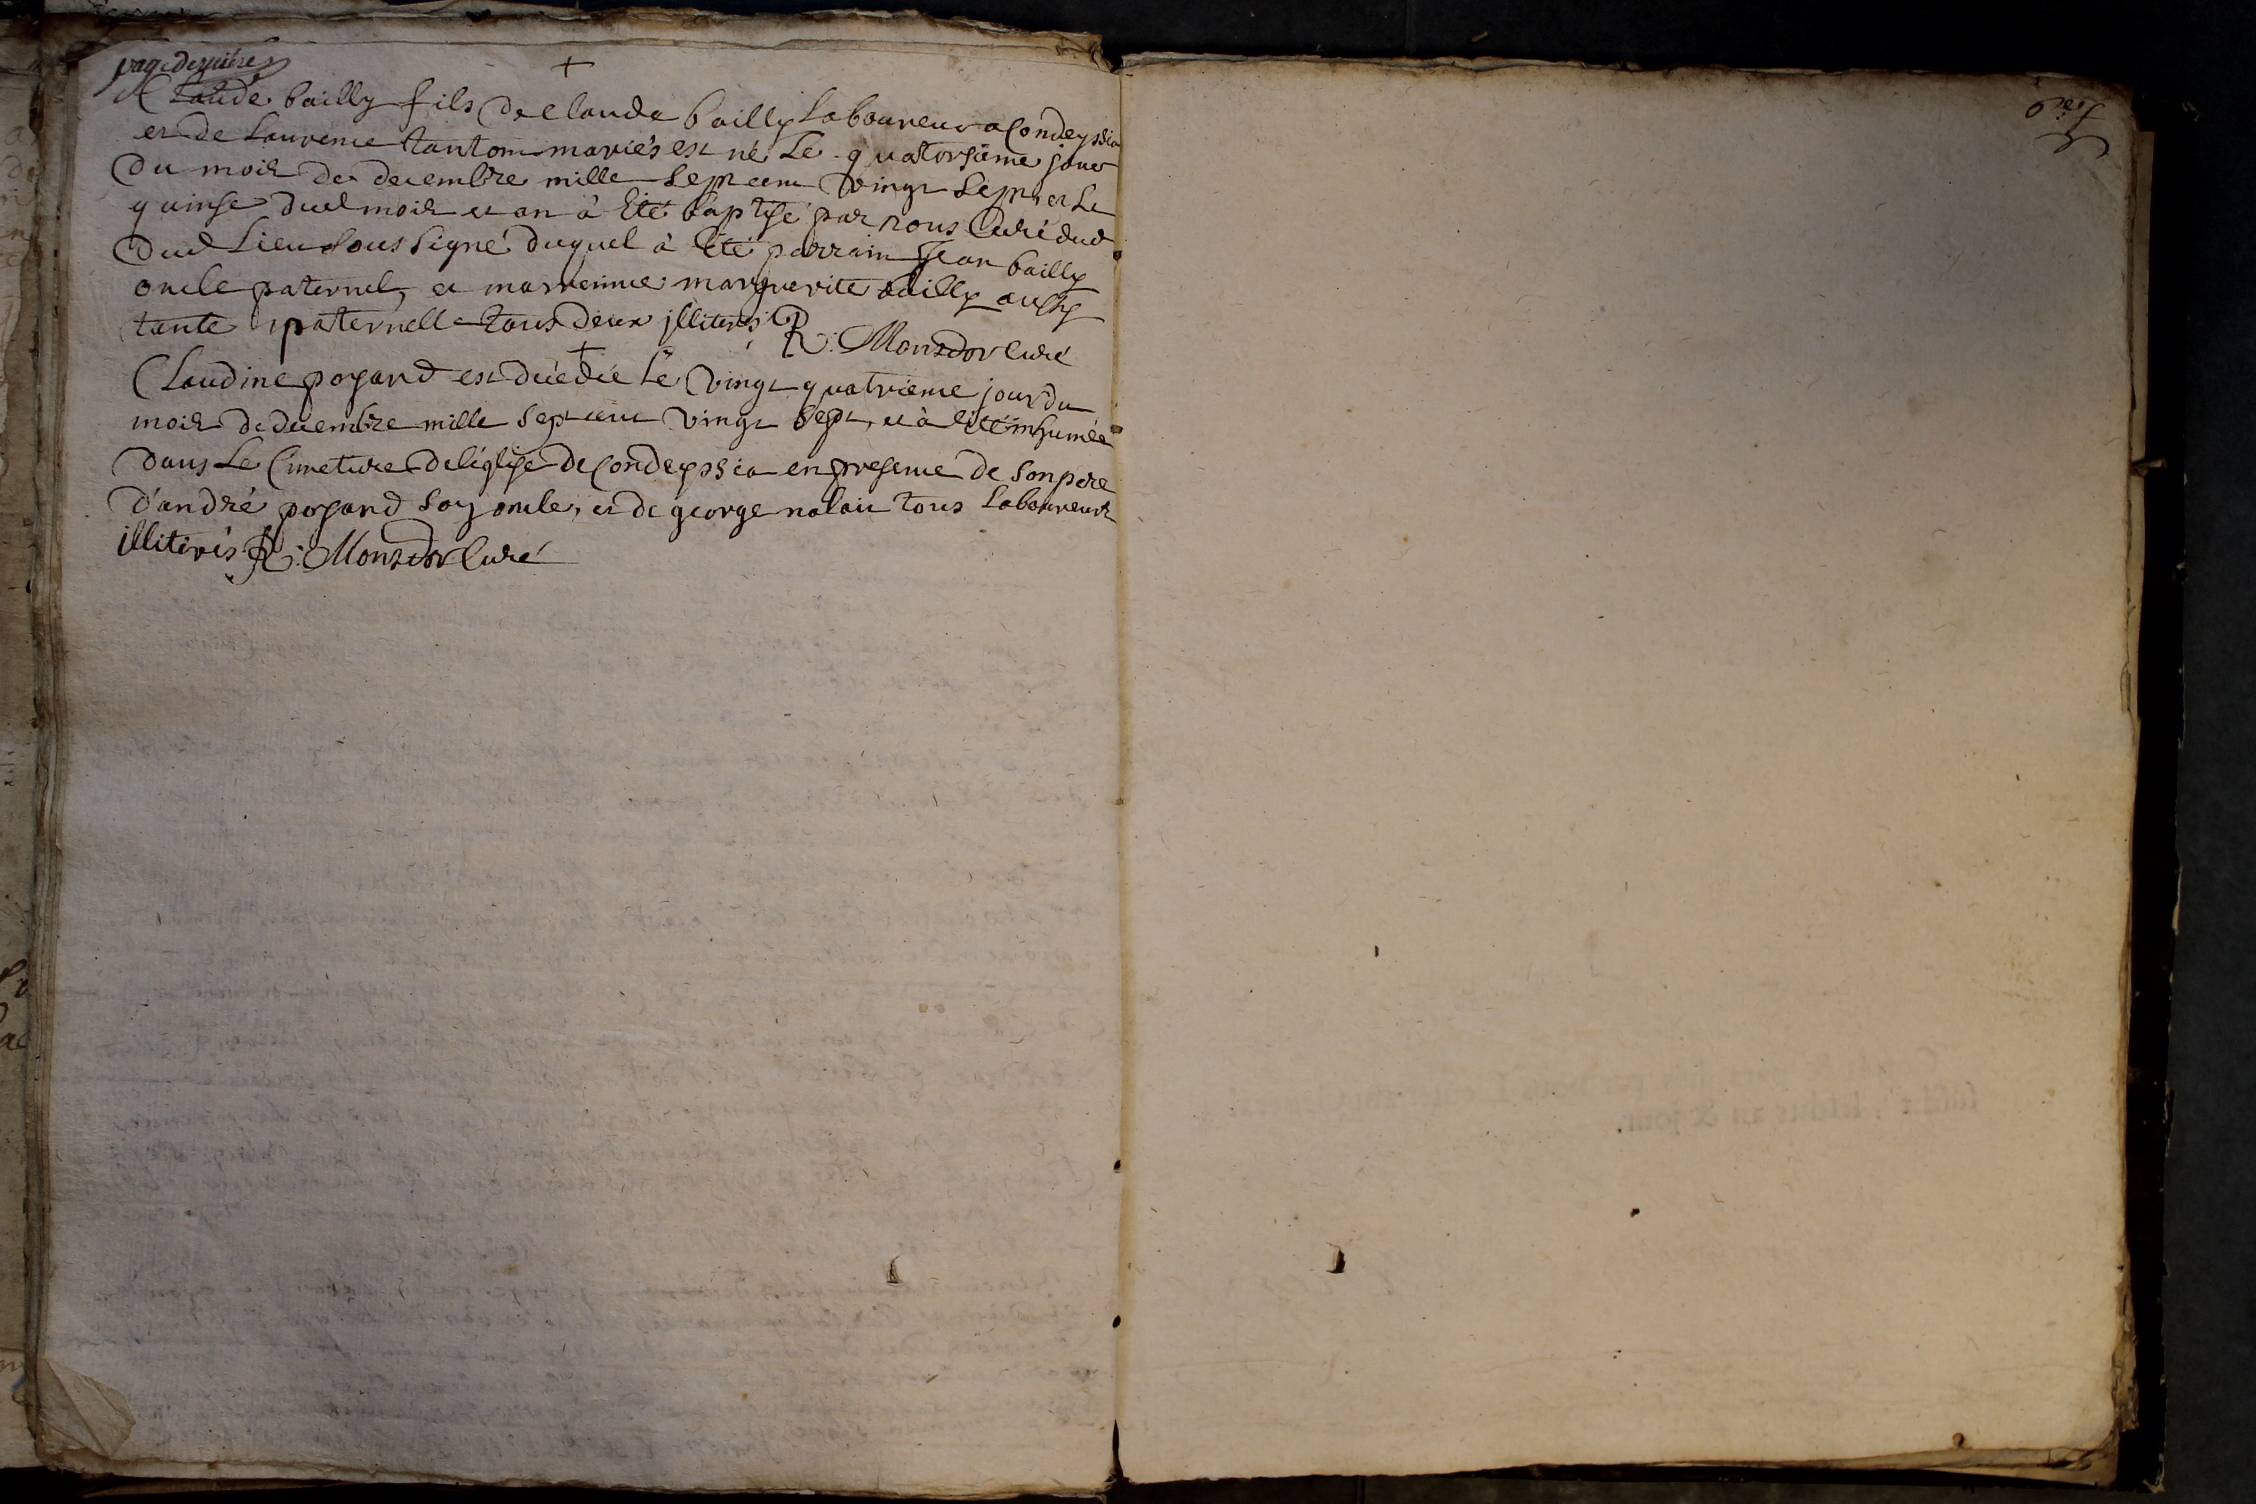 page derniére
Claude bailly fils de claude bailly Laboureur a Condeyssia
et de Laurence tantom mariés est né Le quatorsiéme jour
du mois de decembre mille sept cent vingt sept, et Le
quinse dud mois et an à Eté baptisé par nous Curé dud
dud Lieu sous signé duquel à Eté parrain Jean bailly
oncle paternel, et marrenne marguerite bailly aussy
tante paternelle tous deux illiterés R: Monsdor Curé
Claudine poyard est décédée Le vingt quatriéme jour du
mois de decembre mille sept cent vingt sept, et à Eté inhumée
dans Le Cimetiere de l'église de Condeyssia en presence de son pere
d'andré poyard soy oncle, et de george nalan tous Laboureurs
illiterés R: Monsdor Curé